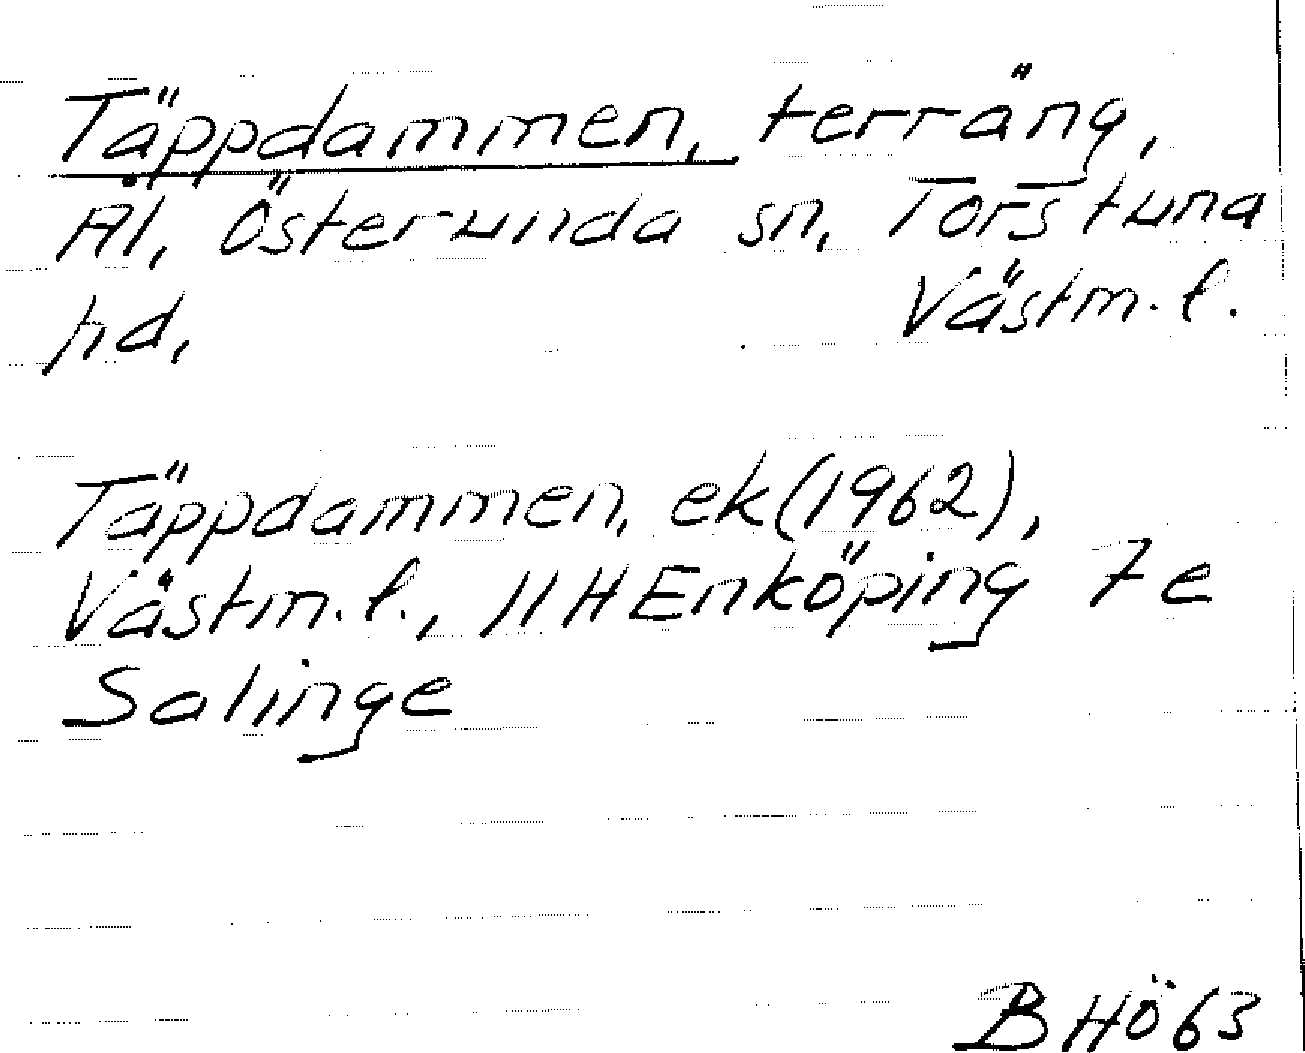 Täppdammen, terräng,
Ål, Österunda sn, Torstuna
hd, Västm. l.
Täppdammen, ek (1962),
Västm. l., 11H Enköping 7e
Salinge
BHö 63